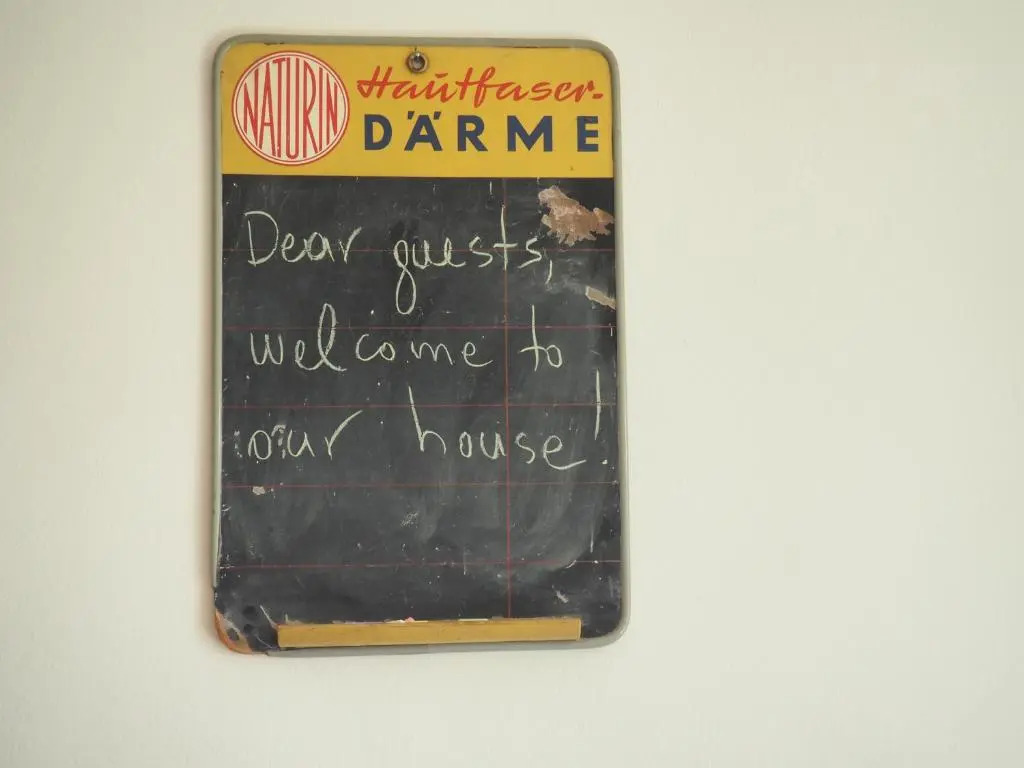 NATURIN
Hautfaser-
DÄRME
Dear guests,
welcome to
our house!